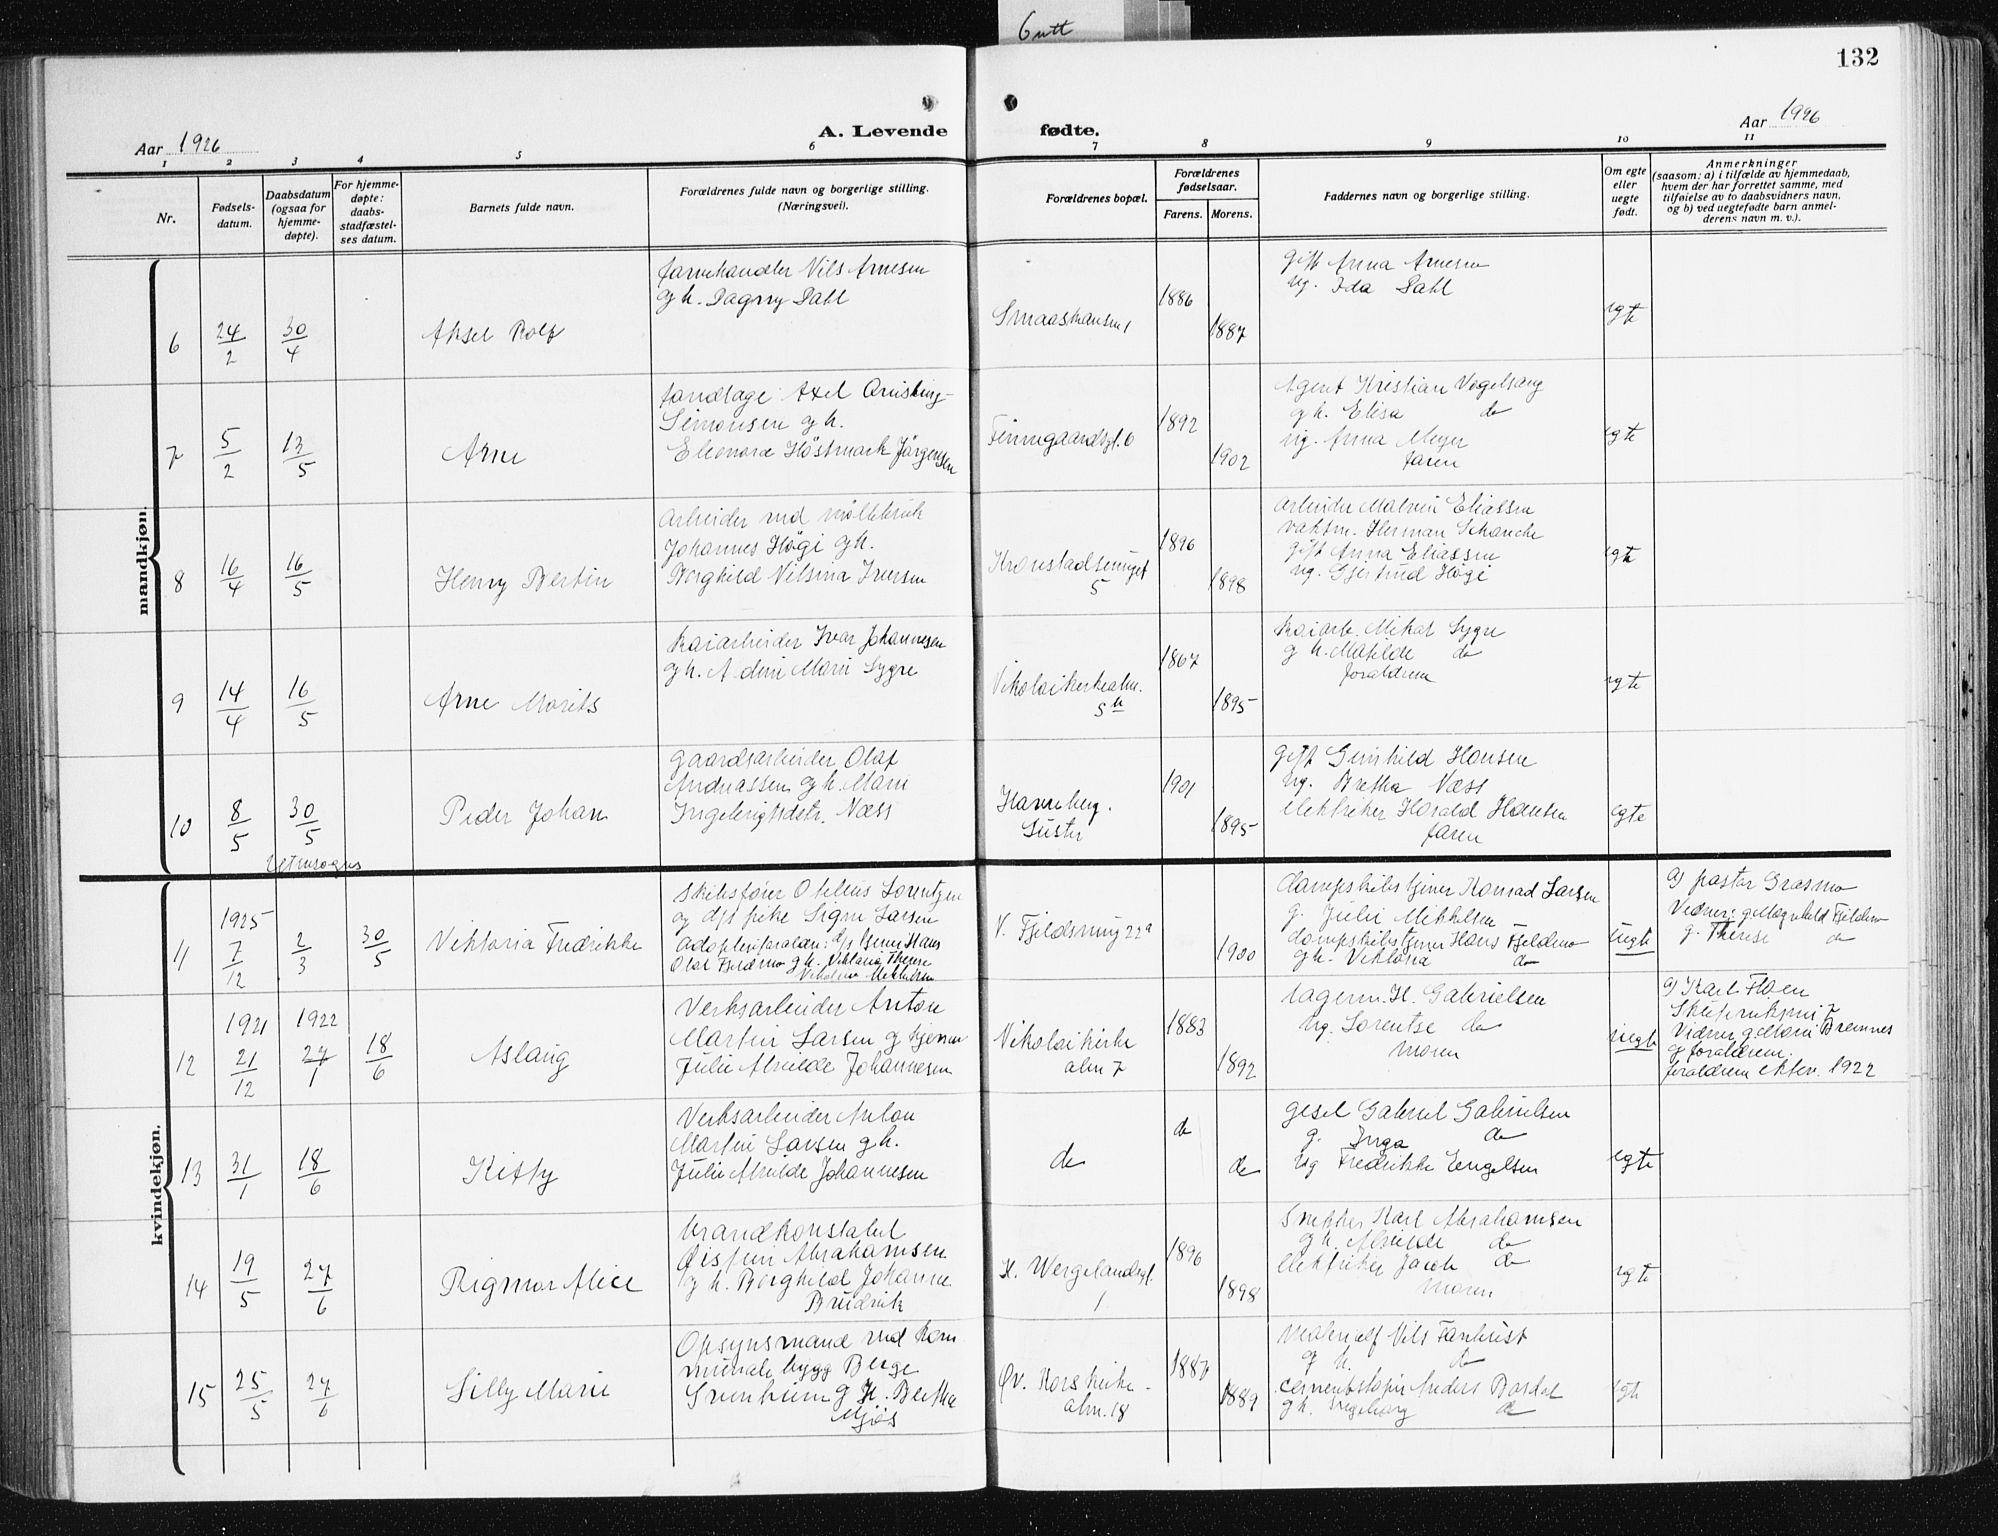 Gutt
132
Aar 1926
A. Levende fødte.
Aar 1926
1 2 3 4 5 6 7 8 9 10 11
Nr.
Fødsels-
datum.
Daabsdatum
(ogsaa for
hjemme-
døpte).
For hjemme-
døpte:
daabs-
stadfæstel-
ses datum.
Barnets fulde navn.
Forældrenes fulde navn og borgerlige stilling.
(Næringsvei).
Forældrenes bopæl.
Forældrenes
fødselsaar.
Farens. Morens.
Faddernes navn og borgerlige stilling.
Om egte
eller
uegte
født.
Anmerkninger
(saasom: a) i tilfælde av hjemmedaab,
hvem der har forrettet samme, med
tilføielse av to daabsvidners navn,
og b) ved uegtefødte barn anmel-
derens navn m. v.).
mandkjøn.
6
24/2
30/4
Aksel Rolf
farvehandler Nils Arnesen
og h. Dagny Dahl
1886
1887
gift Anna Arnesen
ug. Ida Dahl
egte
7
5/2
13/5
Arne
tandlæge Axel
Simonsen og h.
Eleonora Höstmark Jörgensen
Finnegaardsgt. 6
1892
1902
Agent Kristian Vogelsang
og h. Elisa do
ug. Anna Meyer
faren
egte
8
16/4
16/5
Henry Bertin
arbeider ved möllebruk
Johannes Högi og h.
Borghild Nilsina Iversen
Kronstadsmuget
5
1896
1898
arbeider Malvin Eliassen
vaktm. Herman Schanche
gift Anna Eliassen
ug. Gjertrud Högi
egte
9
14/4
16/5
Arne Morits
Kaiarbeider Ivar Johannesen
og h. Adine Marie Sygre
Nikolaikirkealm.
5 b
1867
1895
Kaiarb. Mikal Sygre
og h. Matilde do
forældrene
egte
10
8/5
30/5
Peder Johan
gaardsarbeider Olaf
Andreassen og h. Marie
Ingebrigtsdtr. Næss
Hanneberg.
Luster
1901
1895
gift Gunhild Hansen
ug. Bretha Næss
elektriker Harald Hansen
faren
egte
kvindekjøn.
11
1925
7/12
2/3
30/5
Viktoria Fredrikke
Skibsfører Otelius Lorentzen
og d/s pike Signe Larsen
Adoptivforældre: d/s tjener Hans
Olai Fjeldmo og h. Viktoria Therese
Nikoline Mikkelsen
V. Fjeldsmug 22a
1900
dampskibstjener Konrad Larsen
g. Julie Mikkelsen
dampskibstjener Hans Fjeldmo
og h. Viktoria do
uegte
a) pastor Grasmo
Vidner: g. Magnhild Fjeldmo
g. Therese do
12
1921
21/12
1922
24/1
18/6
Aslaug
Verksarbeider Anton
Martin Larsen og
Julie Alvilde Johannesen
Nikolaikirke
alm 7
1883
1892
lagerm. H. Gabrielsen
ug. Lorentse do
moren
uegte
a) Karl Floen
Vidner g. Marie Bremnes
og forældrene.
forældrene ektev. 1922
13
31/1
18/6
Kitty
Verksarbeider Anton
Martin Larsen og h.
Julie Alvilde Johannesen
do
do
do
gesel Gabriel Gabrielsen
g. Inga do
ug Fredrikke Engelsen
egte
14
19/5
27/6
Rigmor Alice
brandkonstabel
Øistein Abrahamsen
og h. Borghild Johanne
Brudvik
H. Wergelandsgt.
1
1896
1898
Snekker Karl Abrahamsen
og h. Alvilde do
elektriker Jacob do
moren
egte
15
25/5
27/6
Silly Marie
Opsynsmand ved kom
munale bygg Berge
Sevheim og h. Bertha
Mjøs
Øv. Korskirke-
alm. 18
1889
Nils Farekvist
og h. do
cementstøper Anders Bordal
og h. Ingeborg do
egte